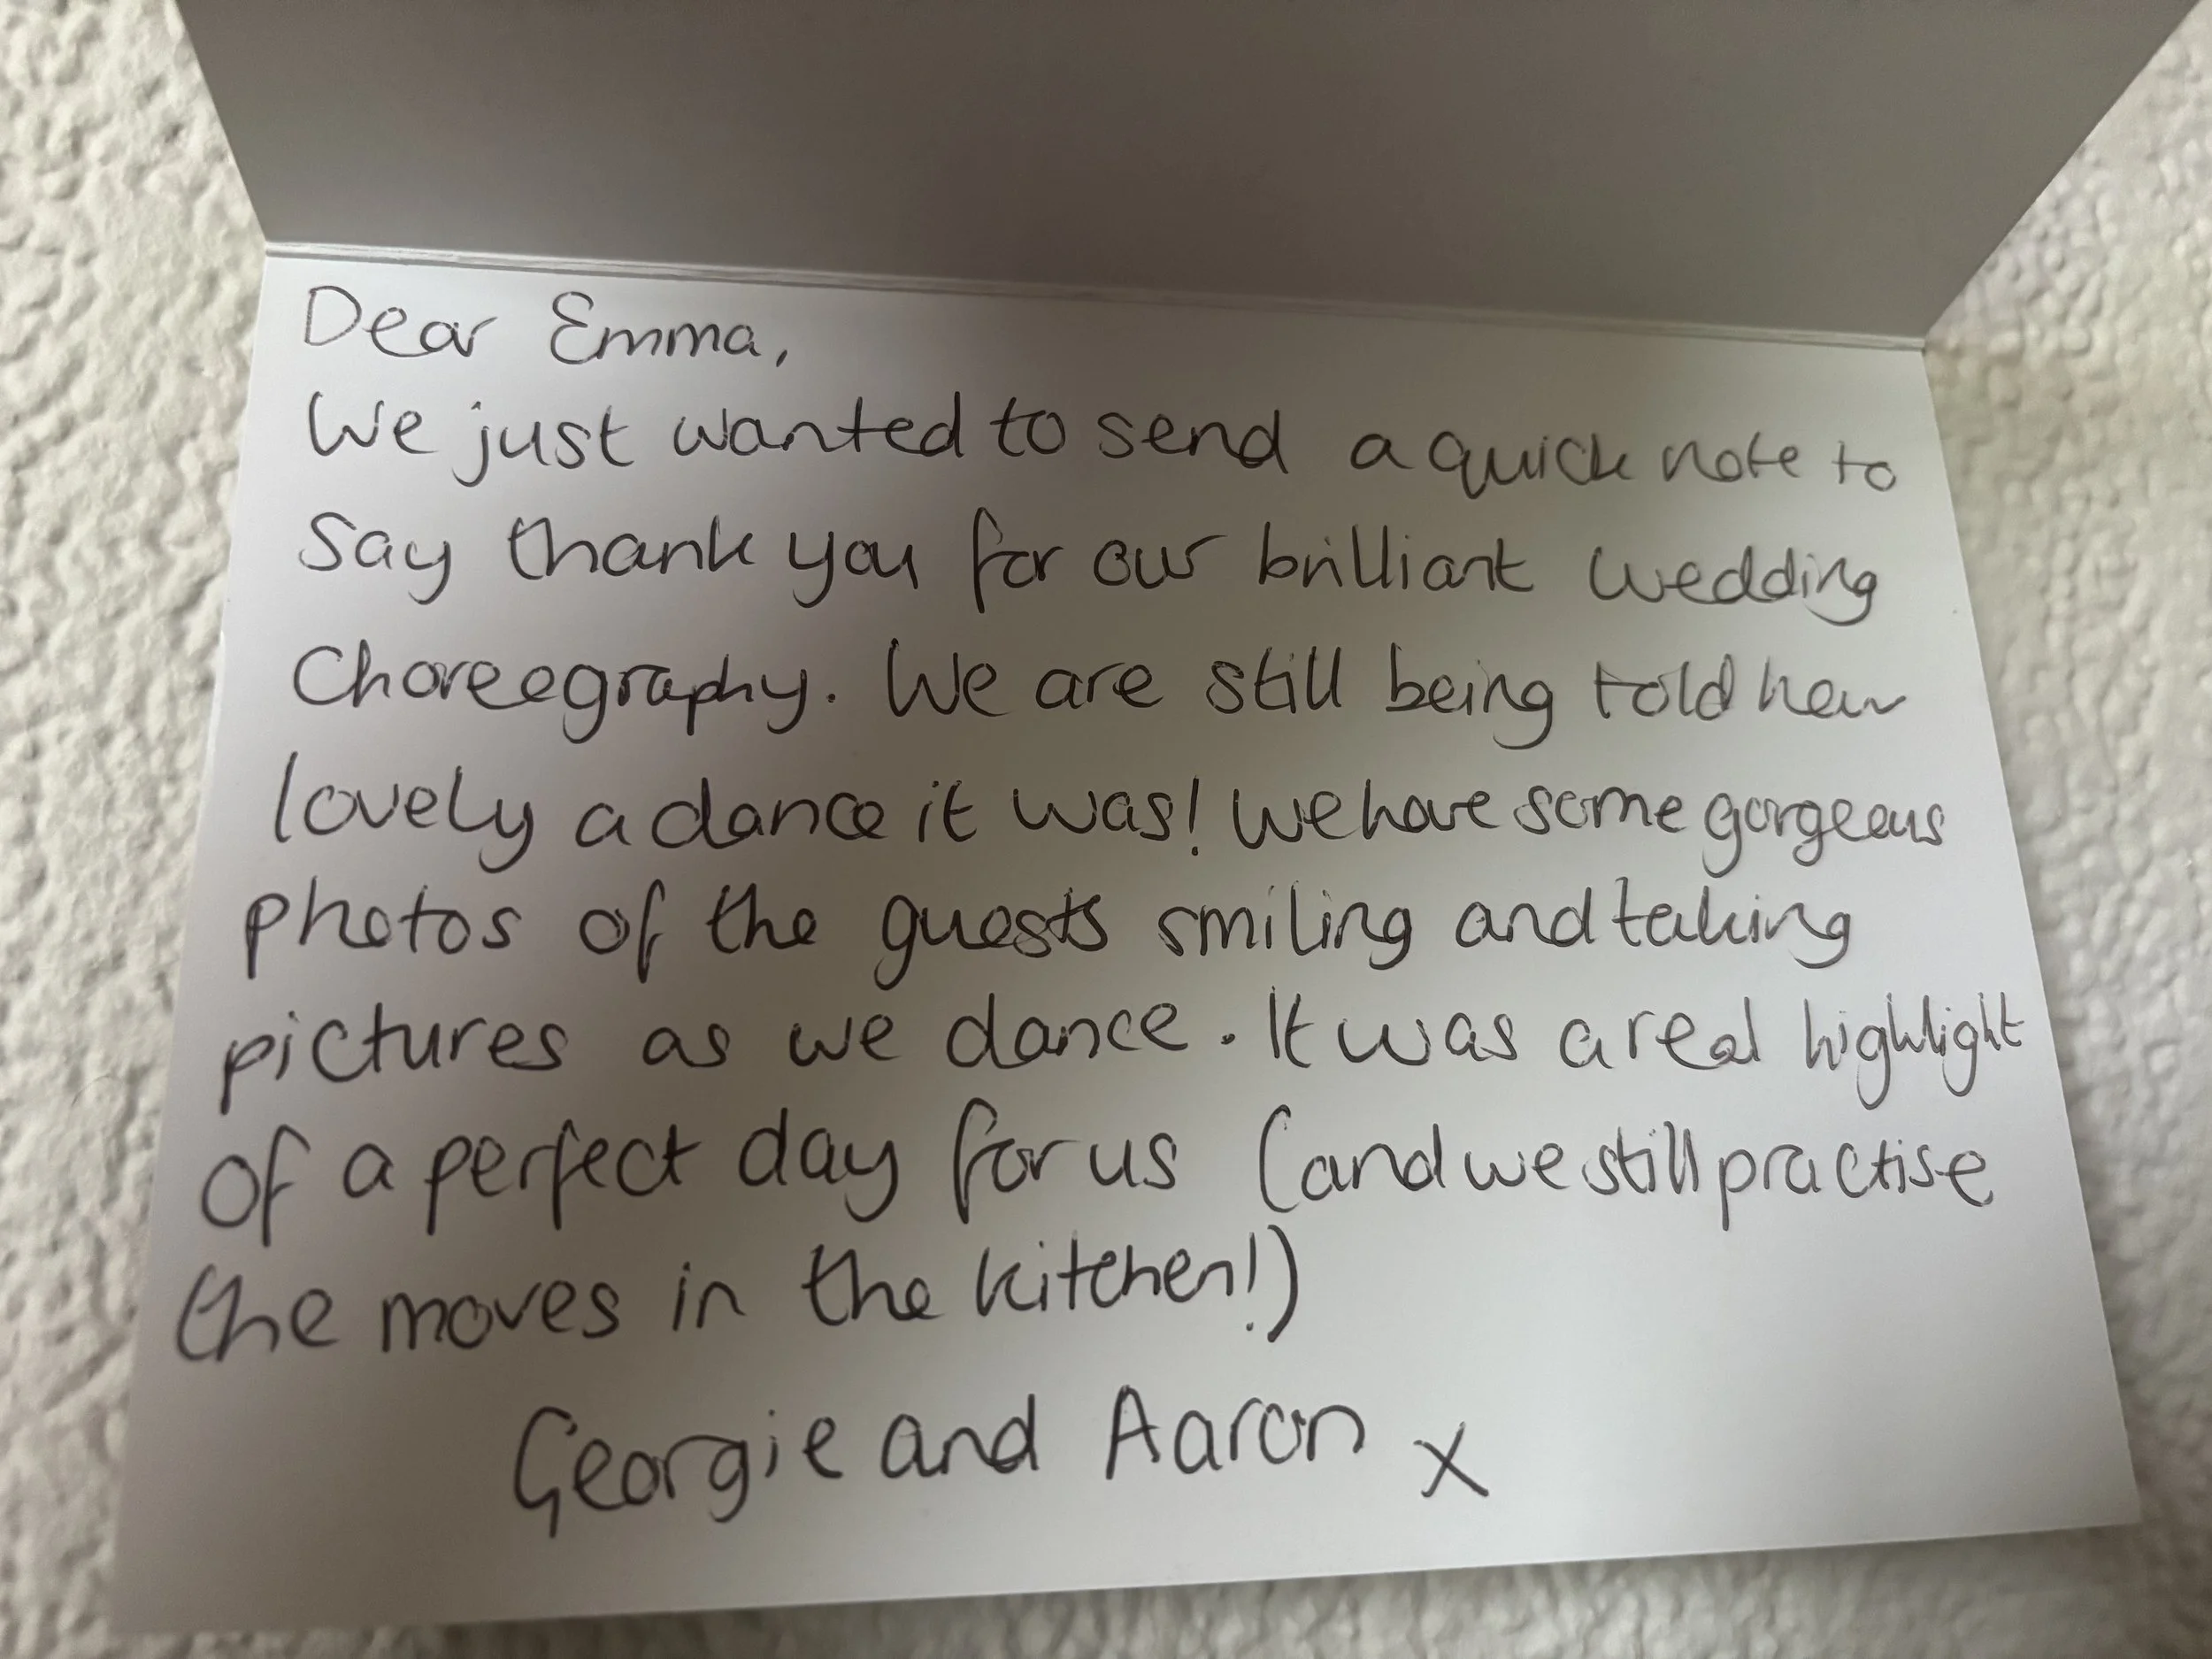 Dear Emma,
We just wanted to send a quick note to
say thank you for our brilliant wedding
choreography. We are still being told how
lovely a dance it was! We have some gorgeous
photos of the guests smiling and taking
pictures as we dance. It was a real highlight
of a perfect day for us (and we still practise
the moves in the kitchen!)
Georgie and Aaron x